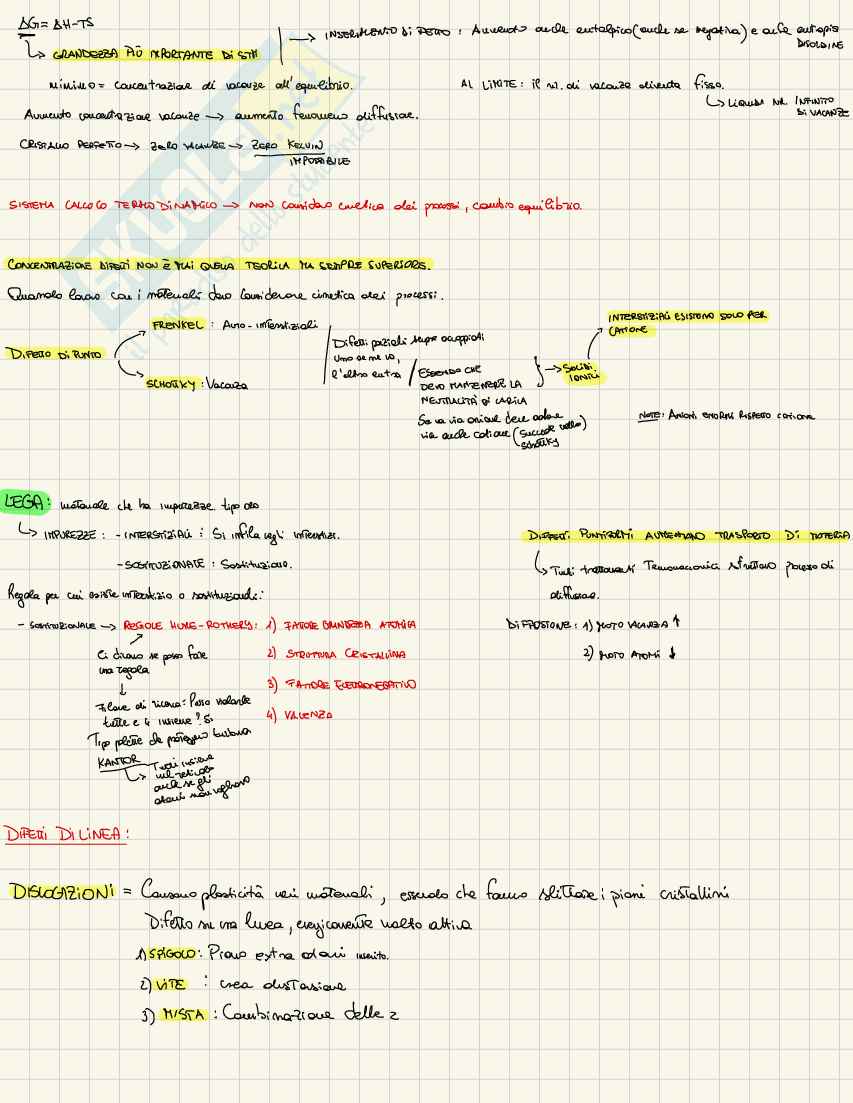 ΔG = ΔH-TS
↳ GRANDEZZA PIÙ IMPORTANTE DI STM
→ INSERIMENTO DI DIFETTO : Aumento anche entalpico (anche se negativa) e anche entropia
DISORDINE
minimo = concentrazione di vacanze all'equilibrio.
AL LIMITE : il n. di vacanze diventa fisso.
↳ LIQUIDI NR INFINITO
DI VACANZE
Aumento concentrazione vacanze → aumento fenomeno diffusione.
CRISTALLO PERFETTO → ZERO VACANZE → ZERO KELVIN
IMPOSSIBILE
SISTEMA CALCOLO TERMODINAMICO → NON considero cinetica dei processi, cambio equilibrio.
CONCENTRAZIONE DIFETTI NON È MAI QUELLA TEORICA MA SEMPRE SUPERIORE.
Quando lavoro con i materiali devo considerare cinetica dei processi.
DIFETTO DI PUNTO
FRENKEL : Auto-interstiziali
SCHOTTKY : Vacanza
Difetti sempre accoppiati
Uno se ne va,
l'altro entra
ESSENDO CHE
DEVO MANTENERE LA
NEUTRALITÀ DI CARICA
→ SOLIDI
IONICI
INTERSTIZIALI ESISTONO SOLO PER
CATIONE
Se va via anione deve andare
via anche catione (succede nella
SCHOTTKY
NOTE: ANIONI ENORMI RISPETTO CATIONE
LEGA : materiale che ha impurezze tipo
↳ IMPUREZZE : - INTERSTIZIALI : Si infila negli interstizi.
- SOSTITUZIONALE : Sostituzione.
DIFETTI PUNTIFORMI AUMENTANO TRASPORTO DI MATERIA
↳ Tutti trattamenti Termomeccanici sfruttano processo di
diffusione.
Regola per cui esiste interstizio o sostituzionale:
DIFFUSIONE : 1) MOTO VACANZA ↑
2) MOTO ATOMI ↓
- SOSTITUZIONALE → REGOLE HUME-ROTHERY : 1) FATTORE GRANDEZZA ATOMICA
2) STRUTTURA CRISTALLINA
3) FATTORE ELETTRONEGATIVO
4) VALENZA
Ci dicono se posso fare
una regola
↓
Filone di ricerca: Posso violarle
tutte e 4 insieme? Sì
Tipo palette che proteggono turbina
KANTOR
↳ Tutti insieme
nel reticolo
anche se gli
atomi non vogliono
DIFETTI DI LINEA :
DISLOCAZIONI = Causano plasticità nei materiali, essendo che fanno slittare i piani cristallini
Difetto su una linea, energicamente molto attiva
1) SPIGOLO : Piano extra atomi inserito.
2) VITE : crea distorsione
3) MISTA : Combinazione delle 2
SKUOLA.net
il paradiso dello studente